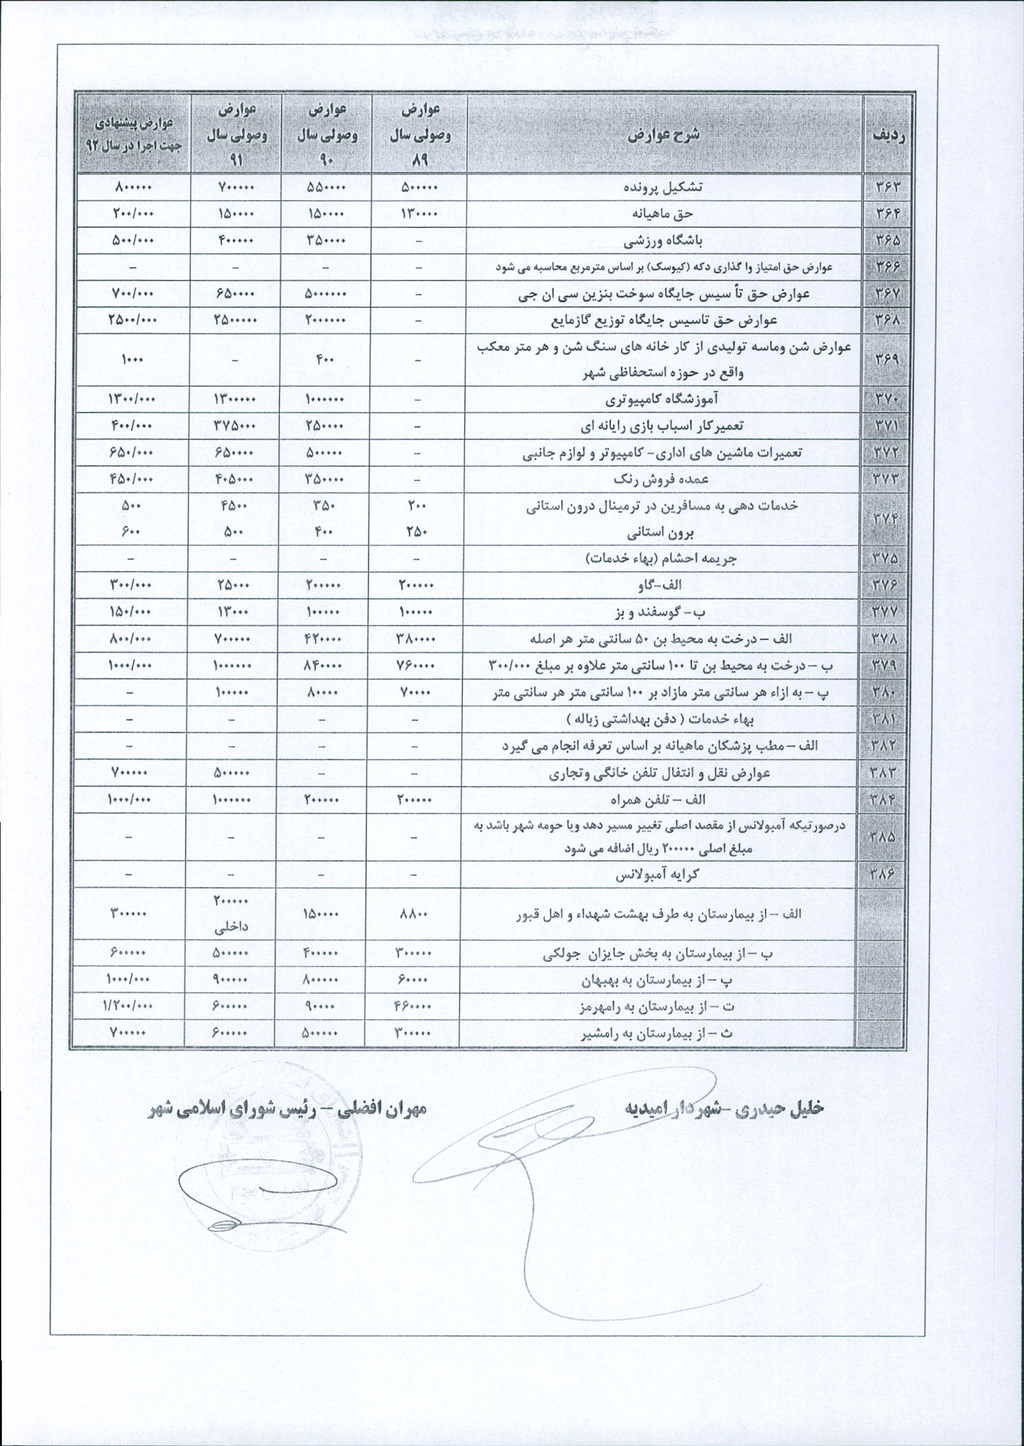 ردیف شرح عوارض عوارض وصولی سال ۸۹ عوارض وصولی سال ۹۰ عوارض وصولی سال ۹۱ عوارض پیشنهادی جهت اجرا در سال ۹۲
۳۶۳ تشکیل پرونده ۵۰۰۰۰۰ ۵۵۰۰۰۰ ۷۰۰۰۰۰ ۸۰۰۰۰۰
۳۶۴ حق ماهیانه ۱۳۰۰۰۰ ۱۵۰۰۰۰ ۱۵۰۰۰۰ ۲۰۰/۰۰۰
۳۶۵ باشگاه ورزشی - ۳۵۰۰۰۰ ۴۰۰۰۰۰ ۵۰۰/۰۰۰
۳۶۶ عوارض حق امتیاز وا گذاری دکه (کیوسک) بر اساس مترمربع محاسبه می شود - - - -
۳۶۷ عوارض حق تأ سیس جایگاه سوخت بنزین سی ان جی - ۵۰۰۰۰۰۰ ۶۵۰۰۰۰ ۷۰۰/۰۰۰
۳۶۸ عوارض حق تاسیس جایگاه توزیع گازمایع - ۲۰۰۰۰۰۰ ۲۵۰۰۰۰۰ ۲۵۰۰/۰۰۰
۳۶۹ عوارض شن وماسه تولیدی از کار خانه های سنگ شن و هر متر معکب - ۴۰۰ - ۱۰۰۰
واقع در حوزه استحفاظی شهر
۳۷۰ آموزشگاه کامپیوتری - ۱۰۰۰۰۰۰ ۱۳۰۰۰۰۰ ۱۳۰۰/۰۰۰
۳۷۱ تعمیرکار اسباب بازی رایانه ای - ۲۵۰۰۰۰ ۳۷۵۰۰۰ ۴۰۰/۰۰۰
۳۷۲ تعمیرات ماشین های اداری- کامپیوتر و لوازم جانبی - ۵۰۰۰۰۰ ۶۵۰۰۰۰ ۶۵۰/۰۰۰
۳۷۳ عمده فروش رنک - ۳۵۰۰۰۰ ۴۰۵۰۰۰ ۴۵۰/۰۰۰
۳۷۴ خدمات دهی به مسافرین در ترمینال درون استانی ۲۰۰ ۳۵۰ ۴۵۰۰ ۵۰۰
برون استانی ۲۵۰ ۴۰۰ ۵۰۰ ۶۰۰
۳۷۵ جریمه احشام (بهاء خدمات) - - - -
۳۷۶ الف-گاو ۲۰۰۰۰۰ ۲۰۰۰۰۰ ۲۵۰۰۰ ۳۰۰/۰۰۰
۳۷۷ ب- گوسفند و بز ۱۰۰۰۰۰ ۱۰۰۰۰۰ ۱۳۰۰۰ ۱۵۰/۰۰۰
۳۷۸ الف – درخت به محیط بن ۵۰ سانتی متر هر اصله ۳۸۰۰۰۰ ۴۲۰۰۰۰ ۷۰۰۰۰۰ ۸۰۰/۰۰۰
۳۷۹ ب – درخت به محیط بن تا ۱۰۰ سانتی متر علاوه بر مبلغ ۳۰۰/۰۰۰ ۷۶۰۰۰۰ ۸۴۰۰۰۰ ۱۰۰۰۰۰۰ ۱۰۰۰/۰۰۰
۳۸۰ پ – به ازاء هر سانتی متر مازاد بر ۱۰۰ سانتی متر هر سانتی متر ۷۰۰۰۰ ۸۰۰۰۰ ۱۰۰۰۰۰ -
۳۸۱ بهاء خدمات ( دفن بهداشتی زباله ) - - - -
۳۸۲ الف – مطب پزشکان ماهیانه بر اساس تعرفه انجام می گیرد - - - -
۳۸۳ عوارض نقل و انتفال تلفن خانگی وتجاری - - ۵۰۰۰۰۰ ۷۰۰۰۰۰
۳۸۴ الف – تلفن همراه ۲۰۰۰۰۰ ۲۰۰۰۰۰ ۱۰۰۰۰۰۰ ۱۰۰۰/۰۰۰
۳۸۵ درصورتیکه آمبولانس از مقصد اصلی تغییر مسیر دهد ویا حومه شهر باشد به - - - -
مبلغ اصلی ۲۰۰۰۰۰ ریال اضافه می شود
۳۸۶ کرایه آمبولانس - - - -
الف – از بیمارستان به طرف بهشت شهداء و اهل قبور ۸۸۰۰ ۱۵۰۰۰۰ ۲۰۰۰۰۰ داخلی ۳۰۰۰۰۰
ب – از بیمارستان به بخش جایزان جولکی ۳۰۰۰۰۰ ۴۰۰۰۰۰ ۵۰۰۰۰۰ ۶۰۰۰۰۰
پ – از بیمارستان به بهبهان ۶۰۰۰۰ ۸۰۰۰۰۰ ۹۰۰۰۰۰ ۱۰۰۰/۰۰۰
ت – از بیمارستان به رامهرمز ۴۶۰۰۰۰ ۹۰۰۰۰ ۶۰۰۰۰۰ ۱/۲۰۰/۰۰۰
ث – از بیمارستان به رامشیر ۳۰۰۰۰۰ ۵۰۰۰۰۰ ۶۰۰۰۰۰ ۷۰۰۰۰۰
خلیل حیدری –شهردار امیدیه مهران افضلی – رئیس شورای اسلامی شهر